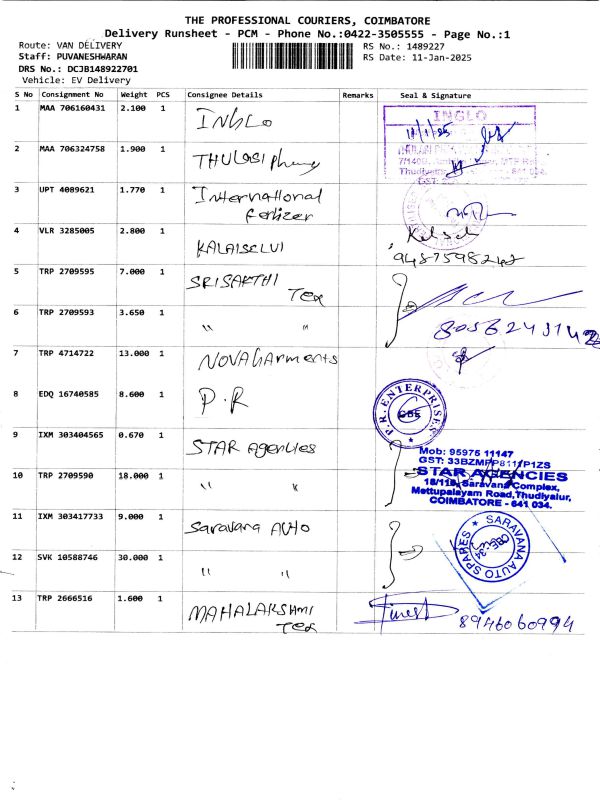 THE PROFESSIONAL COURIERS, COIMBATORE
Delivery Runsheet - PCM - Phone No.:0422-3505555 - Page No.:1
Route: VAN DELIVERY
RS No.: 1489227
Staff: PUVANESHWARAN
RS Date: 11-Jan-2025
DRS No.: DCJB148922701
Vehicle: EV Delivery
S No Consignment No Weight PCS Consignee Details Remarks Seal & Signature
1 MAA 706160431 2.100 1 INGLO INGLO
11/1/25
2 MAA 706324758 1.900 1 THULASI
3 UPT 4089621 1.770 1 International
Fertilizer
4 VLR 3285005 2.800 1 KALAISELVI
9487598242
5 TRP 2709595 7.000 1 SRISAKTHI
Tex
6 TRP 2709593 3.650 1 " " 8056243142
7 TRP 4714722 13.000 1 NOVA Garments
8 EDQ 16740585 8.600 1 P.R P.R. ENTERPRISES
CBE
9 IXM 303404565 0.670 1 STAR Agencies
Mob: 95975 11147
10 TRP 2709590 18.000 1 " "
STAR AGENCIES
18/11B, Saravana Complex,
Mettupalayam Road, Thudiyalur,
COIMBATORE - 641 034.
11 IXM 303417733 9.000 1 Saravana Auto
SARAVANA AUTO SPARES
12 SVK 10588746 30.000 1 " "
13 TRP 2666516 1.600 1 MAHALAKSHMI
Tex
8946060994